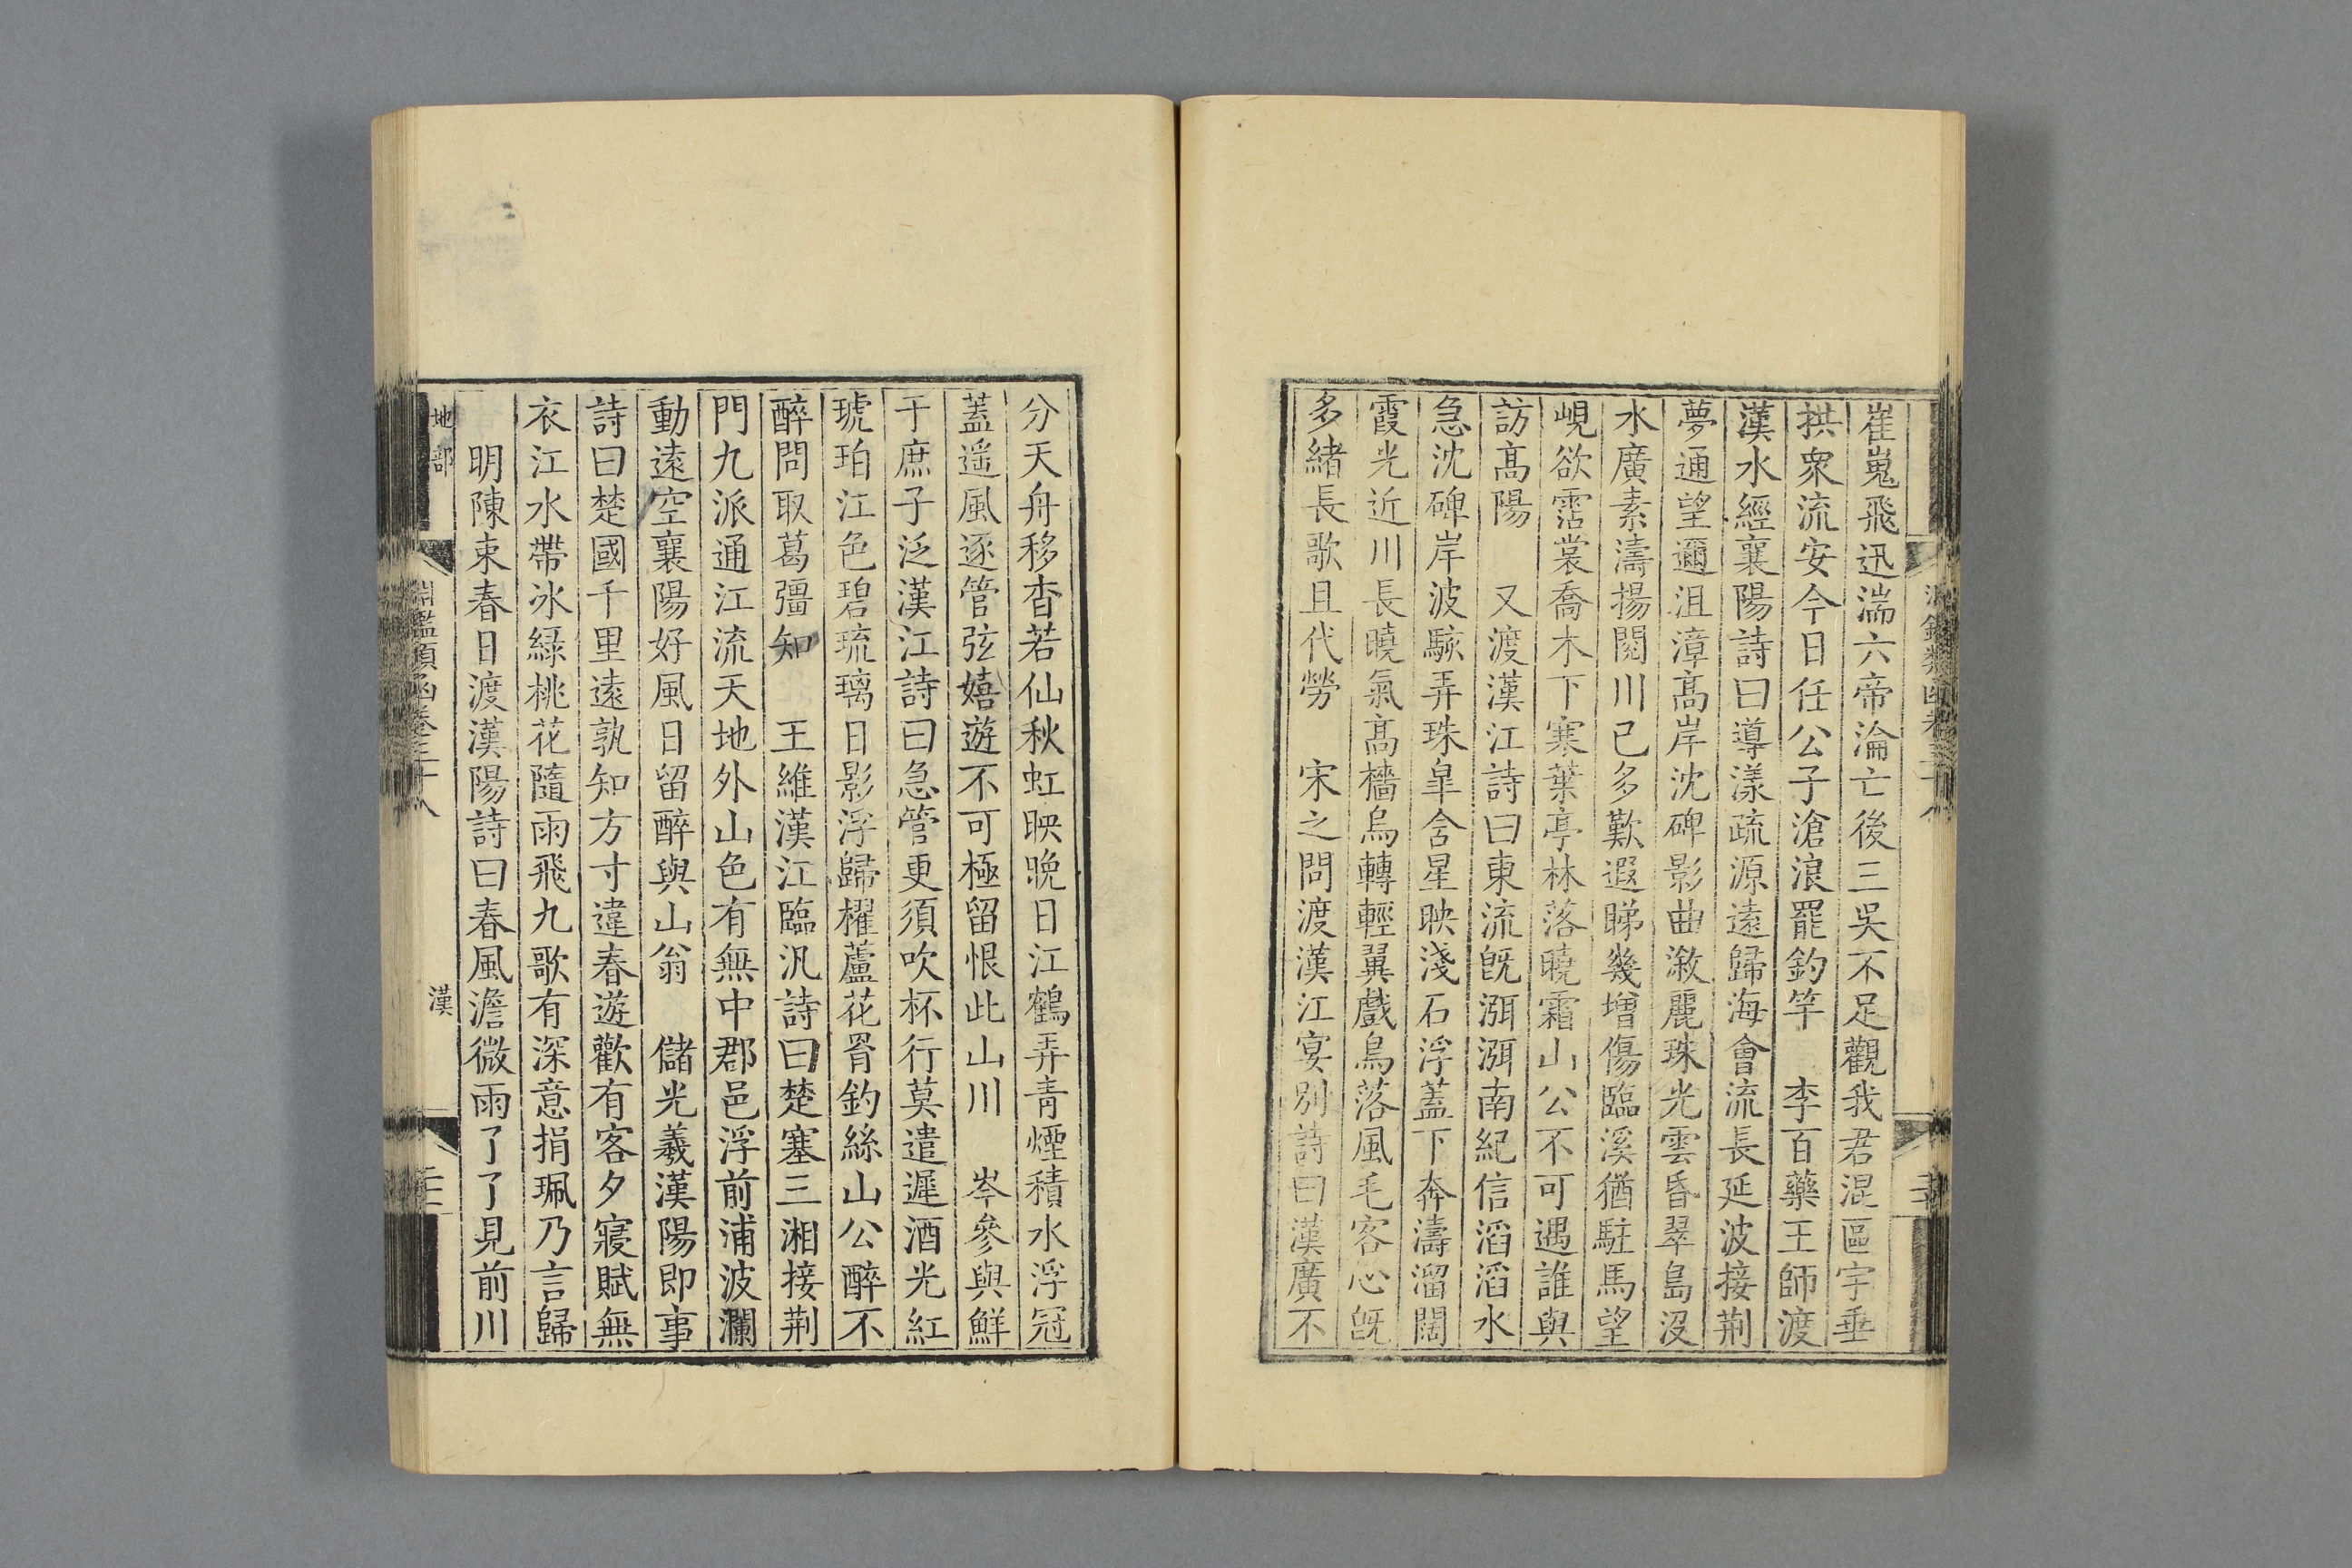 崔嵬飛迅湍六帝淪亡後三吳不足觀我君混區宇垂
拱衆流安今日任公子滄浪罷釣竿　李百藥王師渡
漢水經襄陽詩曰導漾疏源遠歸海會流長延波接荆
夢通望邇沮漳髙岸沈碑影曲漵麗珠光雲昏翠島沒
水廣素濤揚閱川已多歎遐睇幾增傷臨溪猶駐馬望
峴欲霑裳喬木下寒葉亭林落曉霜山公不可遇誰與
訪髙陽　又渡漢江詩曰東流既瀰瀰南紀信滔滔水
急沈碑岸波駭弄珠皐含星映淺石浮蓋下奔濤溜闊
霞光近川長曉氣髙檣烏轉輕翼戲鳥落風毛客心既
多緒長歌且代勞　宋之問渡漢江宴別詩曰漢廣不
分天舟移杳若仙秋虹映晩日江鶴弄青煙積水浮冠
蓋遥風逐管弦嬉遊不可極留恨此山川　岑參與鮮
于庶子泛漢江詩曰急管更須吹杯行莫遣遲酒光紅
琥珀江色碧琉璃日影浮歸櫂蘆花罥釣絲山公醉不
醉問取葛彊知　王維漢江臨汎詩曰楚塞三湘接荆
門九派通江流天地外山色有無中郡邑浮前浦波瀾
動遠空襄陽好風日留醉與山翁　儲光羲漢陽即事
詩曰楚國千里遠孰知方寸違春遊歡有客夕寢賦無
衣江水帶冰緑桃花隨雨飛九歌有深意捐珮乃言歸
明陳束春日渡漢陽詩曰春風澹微雨了了見前川
地部
淵鑑類函卷三十八
漢